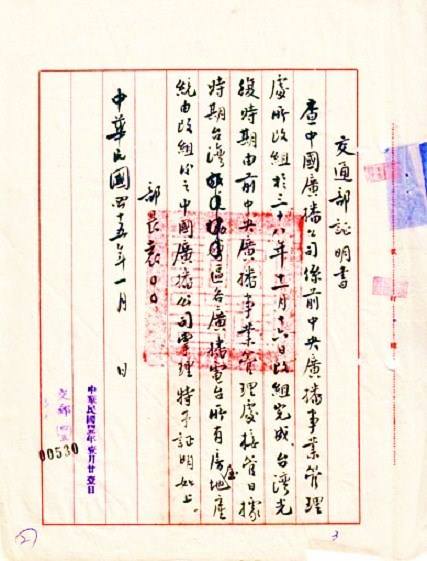 交通部証明書
查中國廣播公司係前中央廣播事業管理
處所改組於三十八年十一月十六日改組完成台灣光
復時期由前中央廣播事業管理處接管日據
時期台灣區各廣播電台所有房屋地產
統由改組後之中國廣播公司掌理特予証明如上。
部長袁口口
中華民國四十五年一月 日
中華民國四五年壹月廿壹日
交郵
00530